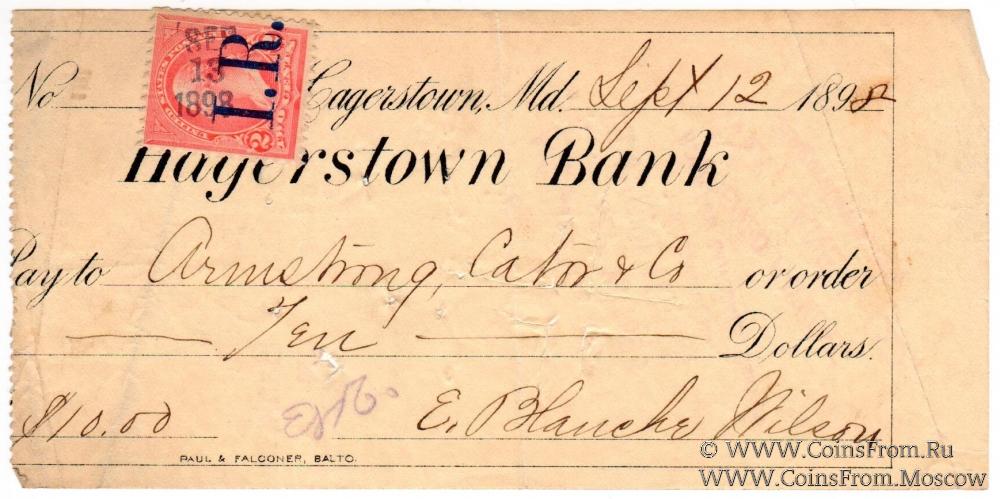 SEP
13
1898
I.R.
UNITED STATES POSTAGE
TWO CENTS
2
No Hagerstown, Md. Sept 12 1898
Hagerstown Bank
Pay to Armstrong, Cator & Co or order
Ten Dollars.
$10.00 E. Blanche Wilson
PAUL & FALCONER, BALTO.
© WWW.CoinsFrom.Ru
WWW.CoinsFrom.Moscow